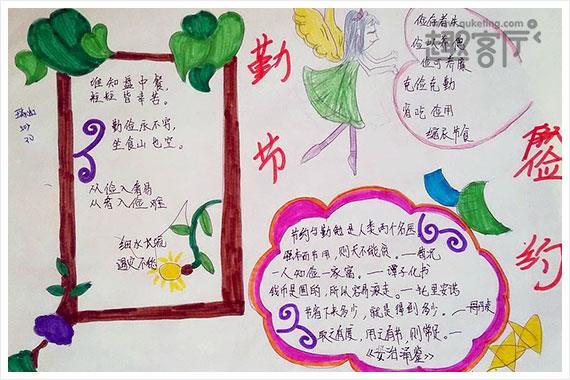 www.quketing.com
趣客厅
谁知盘中餐,
粒粒皆辛苦。
勤俭永不穷,
坐食山也空。
从俭入奢易
从奢入俭难
细水长流
勤
节
俭
约
俭以养德
俭可养廉
克俭克勤
省吃俭用
缩衣节食
节约与勤勉是人类两个名医
强本而节用,则天不能贫。——荀况
一人知俭一家富。——谭子化书
钱币是圆的,所以容易滚走。——托里安诺
节省下来多少,就是得到多少。——丹麦
取之有度,用之有节,则常足。——
《资治通鉴》